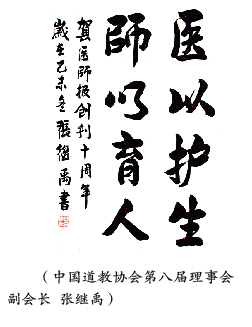 医以护生
師以育人
賀医師报创刊十周年
歲在乙未冬張继禹書
（中国道教协会第八届理事会
副会长 张继禹）